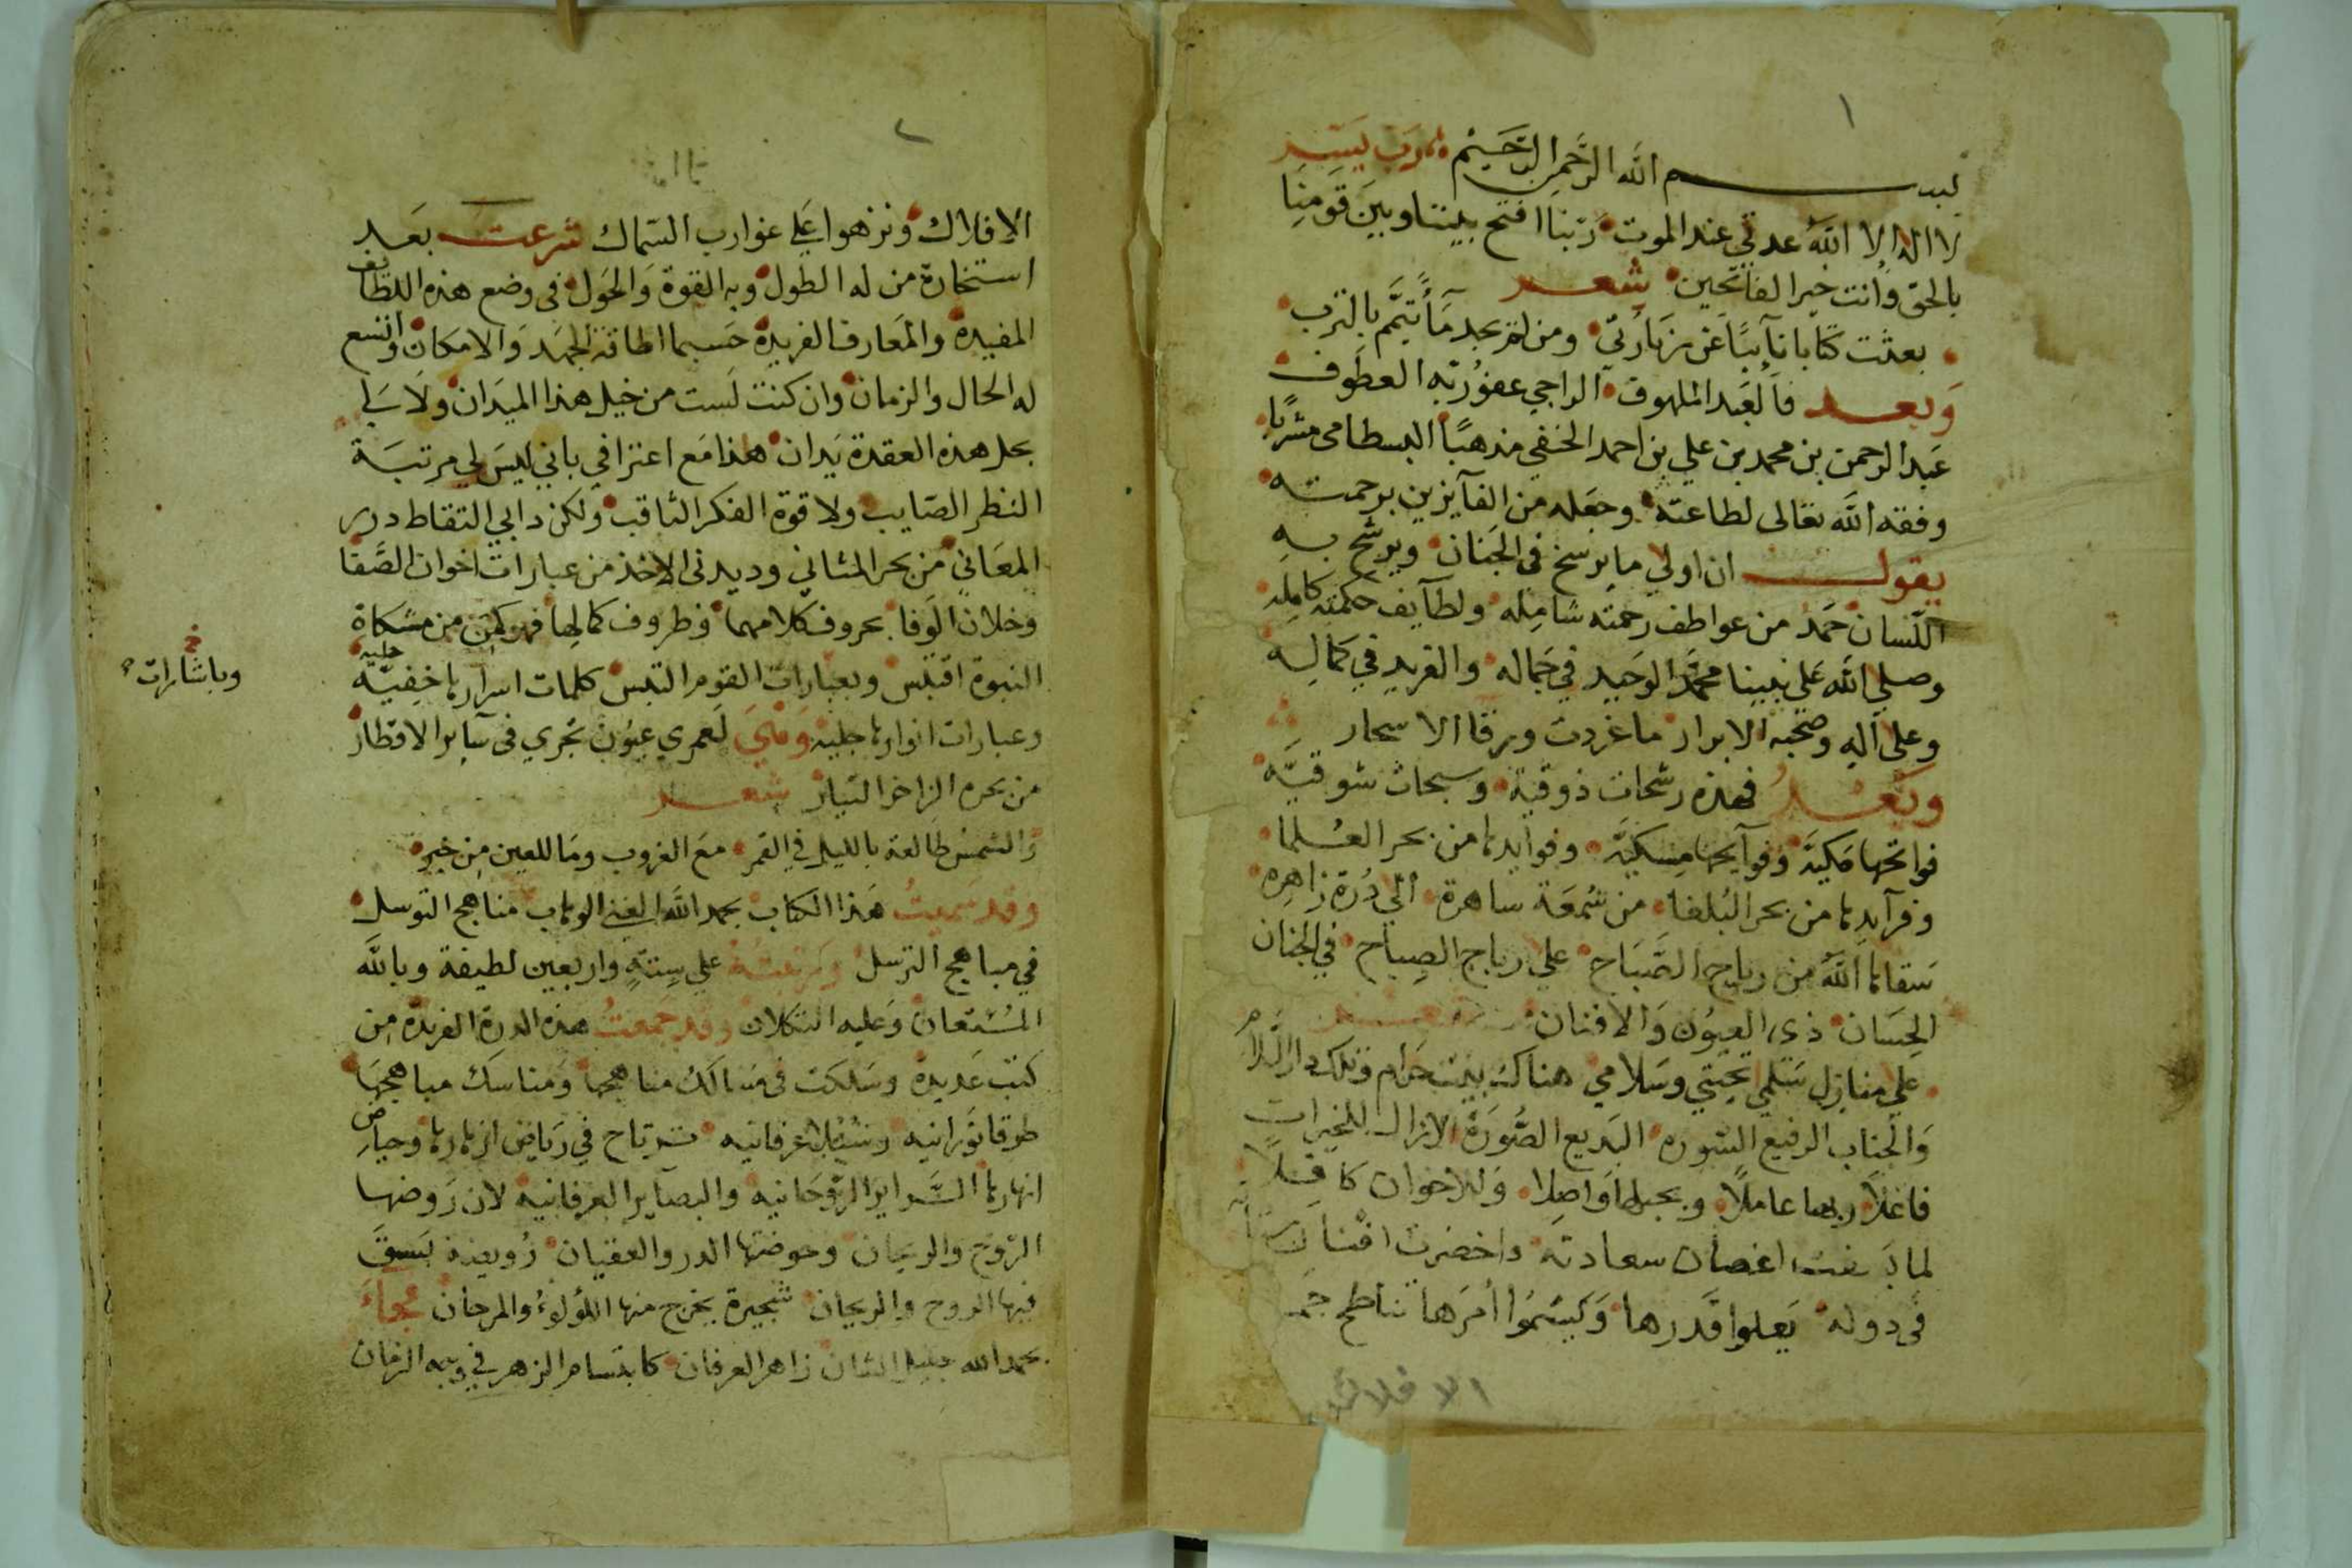 ١
بسم الله الرحمن الرحيم رب يسر
لا اله الا الله عدتي عند الموت ربنا افتح بيننا وبين قومنا
بالحق وانت خير الفاتحين شعر
بعثت كتابا نآئبًا عن زيارتي ومن لم يجد مآء تيمّم بالترب
وبعد فالعبد الملهوف الراجي عفو ربه العطوف
عبد الرحمن بن محمد بن علي بن احمد الحنفي مذهبًا البسطامي مشربًا
وفقه الله تعالى لطاعته وجعله من الفآيزين برحمته
يقول ان اولي ما يرسخ في الجنان ويرشح به
اللسان حمد من عواطف رحمته شامله ولطآيف حكمته كامله
وصلي الله على نبينا محمد الوحيد في جماله والفريد في كماله
وعلى آله وصحبه الابرار ما غردت ورقا الاسحار
وبعد فهذه رشحات ذوقية وسبحات شوقيّه
فواتحها مكيّة وفوآيحها مسكيّة وفوايدها من بحر العلما
وفرآيدها من بحر البلغا من شمعة ساهرة الي درة زاهره
سقاها الله من رياح الصباح علي رياح الصباح في الجنان
الحسان ذوي العيون والافنان شعر
علي منازل سلمي تحيتي وسلامي هناك بيت حرام وتلك دار السلام
والجناب الرفيع السوره البديع الصورة لازال للخيرات
فاعلاً وبها عاملاً وبحبلها واصلا وللاخوان كافلاً
لما اغصان سعادته واخضرت افنان
في دولة يعلوا قدرها ويسموا أمرها تناطح
الافلاك
٢
الافلاك ونزهوا علي غوارب السماك شرعت بعد
استخارة من له الطول وبه القوة والحول في وضع هذه اللطائف
المفيدة والمعارف الفريدة حسبما اطاقه الجهد والامكان واتسع
له الحال والزمان وان كنت لست من خيل هذا الميدان ولا لي
بحل هذه العقدة يدان هذا مع اعترافي باني ليس لي مرتبة
النظر الصايب ولا قوة الفكر الثاقب ولكن دابي التقاط درر
المعاني من بحر المثاني وديدني الاخذ من عبارات اخوان الصفا
وخلان الوفا بحروف كلامهما وظروف كمالها فهو كمن من مشكاة
النبوة اقتبس وبعبارات القوم التبس كلمات اسرارها خفيّه جليه
خ
وباشارات
وعبارات انوارها جليه وهي لعمري عيون تجري في سآير الاقطار
من بحره الزاخر التيار شعر
والشمس طالعة بالليل في القمر مع الغروب وما للعين من خبر
وقد سميت هذا الكتاب بحمد الله الغني الوهاب مناهج التوسل
في مباهج الترسل ورتبته علي ستةٍ واربعين لطيفة وبالله
المستعان وعليه التكلان وقد جمعت هذه الدرة الفريدة من
كتب عديدة وسلكت في مسالك مناهجها ومناسك مباهجها
طرقا نورانيه وسبلا عرفانيه ترتاح في رياض ازهارها وحياض
انهارها السراير الروحانيه والبصاير العرفانيه لان روضها
الروح والريحان وحوضها الدر والعقيان رويضة بسق
فيها الروح والريحان شجيرة يخرج منها اللؤلؤ والمرجان فجاء
بحمد الله جليل الشان زاهر العرفان كابتسام الزهر في وجه الزمان